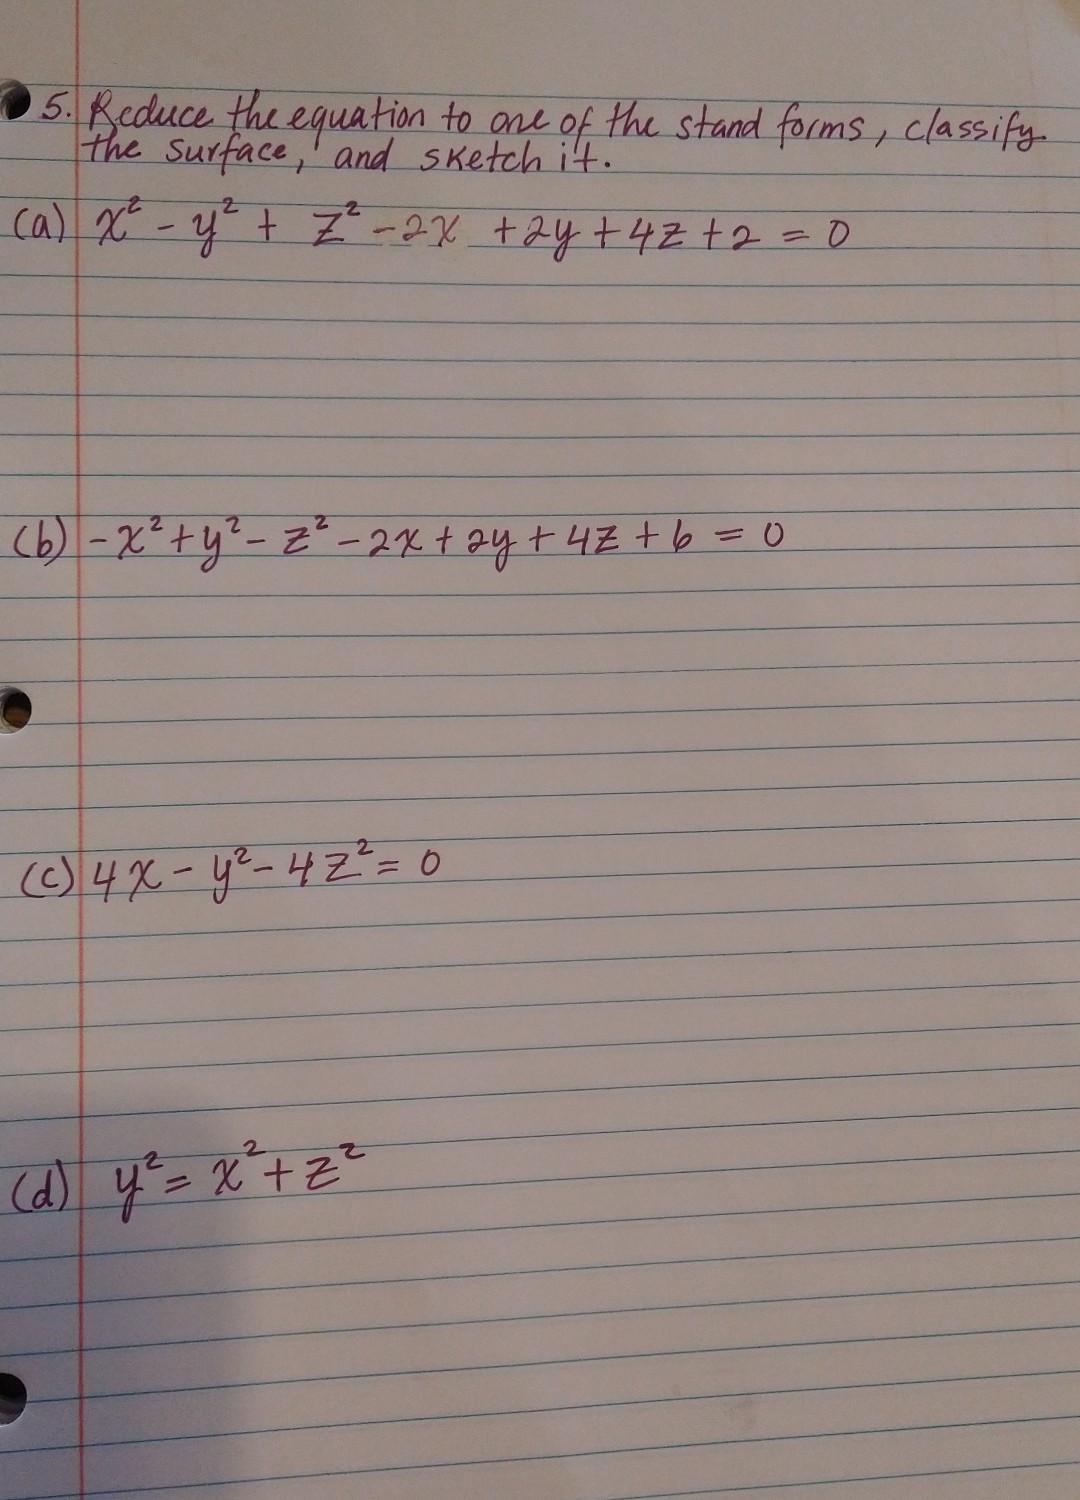 5. Reduce the equation to one of the stand forms, classify
the surface, and sketch it.
(a) x² - y² + z² - 2x + 2y + 4z + 2 = 0
(b) -x² + y² - z² - 2x + 2y + 4z + 6 = 0
(c) 4x - y² - 4z² = 0
(d) y² = x² + z²